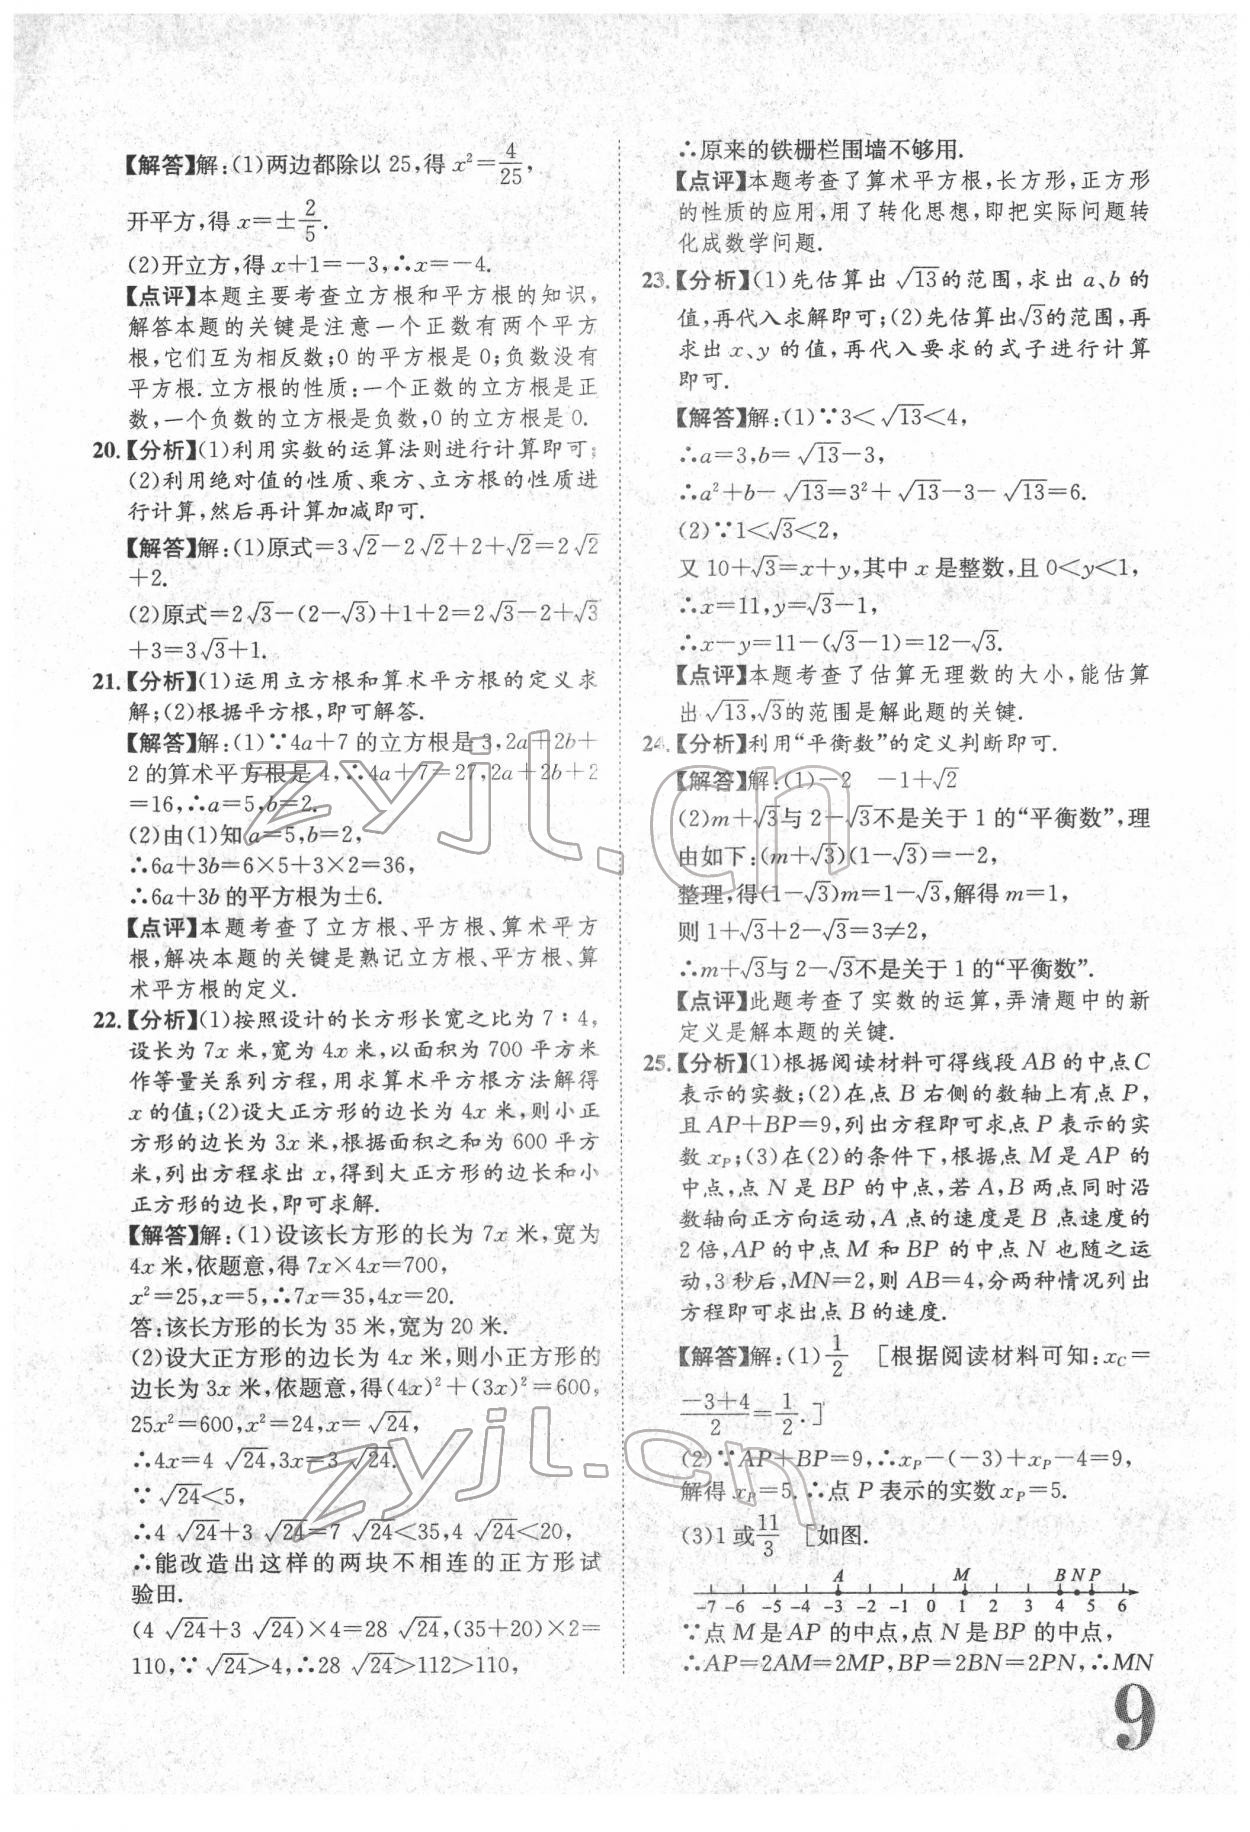 【解答】解:(1)两边都除以 25,得 x²=4/25,
开平方,得 x=±2/5.
(2)开立方,得 x+1=-3,∴x=-4.
【点评】本题主要考查立方根和平方根的知识,
解答本题的关键是注意一个正数有两个平方
根,它们互为相反数;0 的平方根是 0;负数没有
平方根.立方根的性质:一个正数的立方根是正
数,一个负数的立方根是负数,0 的立方根是 0.
20.【分析】(1)利用实数的运算法则进行计算即可;
(2)利用绝对值的性质、乘方、立方根的性质进
行计算,然后再计算加减即可.
【解答】解:(1)原式=3√2-2√2+2+√2=2√2
+2.
(2)原式=2√3-(2-√3)+1+2=2√3-2+√3
+3=3√3+1.
21.【分析】(1)运用立方根和算术平方根的定义求
解;(2)根据平方根,即可解答.
【解答】解:(1)∵4a+7 的立方根是 3,2a+2b+
2 的算术平方根是 4,∴4a+7=27,2a+2b+2
=16,∴a=5,b=2.
(2)由(1)知 a=5,b=2,
∴6a+3b=6×5+3×2=36,
∴6a+3b 的平方根为±6.
【点评】本题考查了立方根、平方根、算术平方
根,解决本题的关键是熟记立方根、平方根、算
术平方根的定义.
22.【分析】(1)按照设计的长方形长宽之比为 7∶4,
设长为 7x 米,宽为 4x 米,以面积为 700 平方米
作等量关系列方程,用求算术平方根方法解得
x 的值;(2)设大正方形的边长为 4x 米,则小正
方形的边长为 3x 米,根据面积之和为 600 平方
米,列出方程求出 x,得到大正方形的边长和小
正方形的边长,即可求解.
【解答】解:(1)设该长方形的长为 7x 米,宽为
4x 米,依题意,得 7x×4x=700,
x²=25,x=5,∴7x=35,4x=20.
答:该长方形的长为 35 米,宽为 20 米.
(2)设大正方形的边长为 4x 米,则小正方形的
边长为 3x 米,依题意,得(4x)²+(3x)²=600,
25x²=600,x²=24,x=√24,
∴4x=4√24,3x=3√24.
∵√24<5,
∴4√24+3√24=7√24<35,4√24<20,
∴能改造出这样的两块不相连的正方形试
验田.
(4√24+3√24)×4=28√24,(35+20)×2=
110,∵√24>4,∴28√24>112>110,
∴原来的铁栅栏围墙不够用.
【点评】本题考查了算术平方根,长方形,正方形
的性质的应用,用了转化思想,即把实际问题转
化成数学问题.
23.【分析】(1)先估算出√13的范围,求出 a、b 的
值,再代入求解即可;(2)先估算出√3的范围,再
求出 x、y 的值,再代入要求的式子进行计算
即可.
【解答】解:(1)∵3<√13<4,
∴a=3,b=√13-3,
∴a²+b-√13=3²+√13-3-√13=6.
(2)∵1<√3<2,
又 10+√3=x+y,其中 x 是整数,且 0<y<1,
∴x=11,y=√3-1,
∴x-y=11-(√3-1)=12-√3.
【点评】本题考查了估算无理数的大小,能估算
出√13,√3的范围是解此题的关键.
24.【分析】利用“平衡数”的定义判断即可.
【解答】解:(1)-2 -1+√2
(2)m+√3与 2-√3不是关于 1 的“平衡数”,理
由如下:(m+√3)(1-√3)=-2,
整理,得(1-√3)m=1-√3,解得 m=1,
则 1+√3+2-√3=3≠2,
∴m+√3与 2-√3不是关于 1 的“平衡数”.
【点评】此题考查了实数的运算,弄清题中的新
定义是解本题的关键.
25.【分析】(1)根据阅读材料可得线段 AB 的中点 C
表示的实数;(2)在点 B 右侧的数轴上有点 P,
且 AP+BP=9,列出方程即可求点 P 表示的实
数 xP;(3)在(2)的条件下,根据点 M 是 AP 的
中点,点 N 是 BP 的中点,若 A,B 两点同时沿
数轴向正方向运动,A 点的速度是 B 点速度的
2 倍,AP 的中点 M 和 BP 的中点 N 也随之运
动,3 秒后,MN=2,则 AB=4,分两种情况列出
方程即可求出点 B 的速度.
【解答】解:(1)1/2 [根据阅读材料可知:xC=
(-3+4)/2=1/2.]
(2)∵AP+BP=9,∴xP-(-3)+xP-4=9,
解得 xP=5.∴点 P 表示的实数 xP=5.
(3)1 或 11/3 [如图.
A M B N P
-7 -6 -5 -4 -3 -2 -1 0 1 2 3 4 5 6
∵点 M 是 AP 的中点,点 N 是 BP 的中点,
∴AP=2AM=2MP,BP=2BN=2PN,∴MN
9
zyjl.cn
zyjl.cn